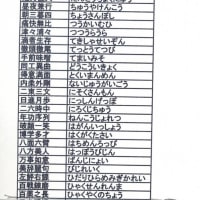 昼夜兼行 ちゅうやけんこう
朝三暮四 ちょうさんぼし
痛快無比 つうかいむひ
津々浦々 つつうらうら
適者生存 てきしゃせいぞん
徹頭徹尾 てっとうてつび
手前味噌 てまいみそ
同工異曲 どうこういきょく
得意満面 とくいまんめん
内柔外剛 ないじゅうがいごう
二束三文 にそくさんもん
日進月歩 にっしんげっぽ
二六時中 にろくじちゅう
年功序列 ねんこうじょれつ
破顔一笑 はがんいっしょう
博学多才 はくがくたさい
八面六臂 はちめんろっぴ
八方美人 はっぽうびじん
万事如意 ばんじにょい
美辞麗句 びじれいく
百戦錬磨 ひゃくせんれんま
百薬之長 ひゃくやくのちょう